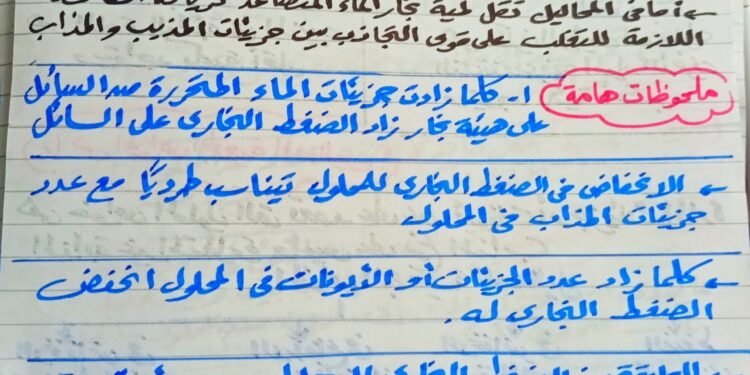 ← أما في المحاليل تقل كمية بخار الماء المتصاعد
اللازمة للتغلب على قوى التجاذب بين جزيئات المذيب والمذاب
ملحوظات هامة
١- كلما زادت جزيئات الماء المتحررة من السائل
على هيئة بخار زاد الضغط البخاري على السائل
← الانخفاض في الضغط البخاري للمحلول يتناسب طرديًا مع عدد
جزيئات المذاب في المحلول
← كلما زاد عدد الجزيئات أو الأيونات في المحلول انخفض
الضغط البخاري له.